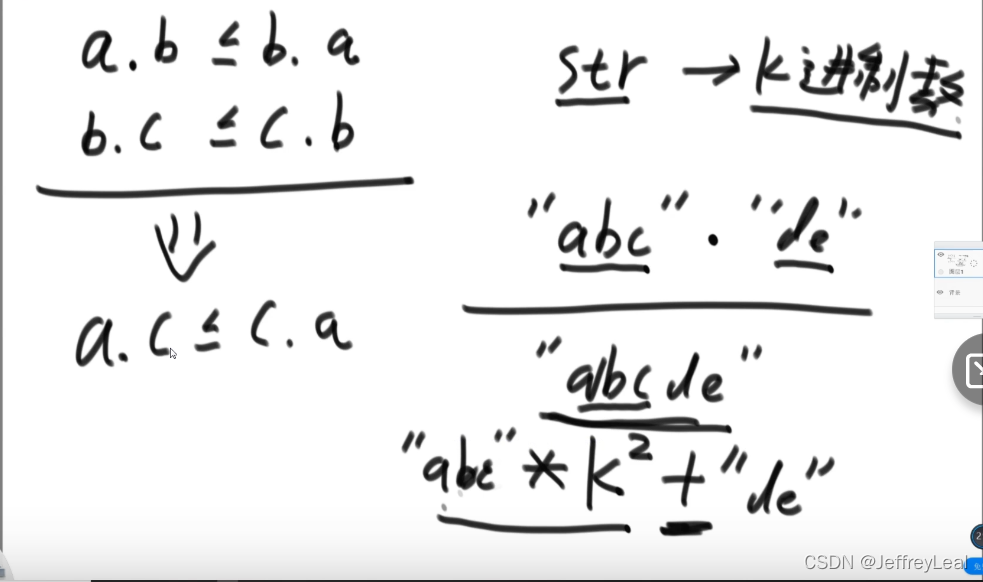 a.b ≤ b.a
b.c ≤ c.b
a.c ≤ c.a
str → k进制数
"abc" · "de"
"abcde"
"abc" * k² + "de"
图层1
背景
CSDN @JeffreyLeal